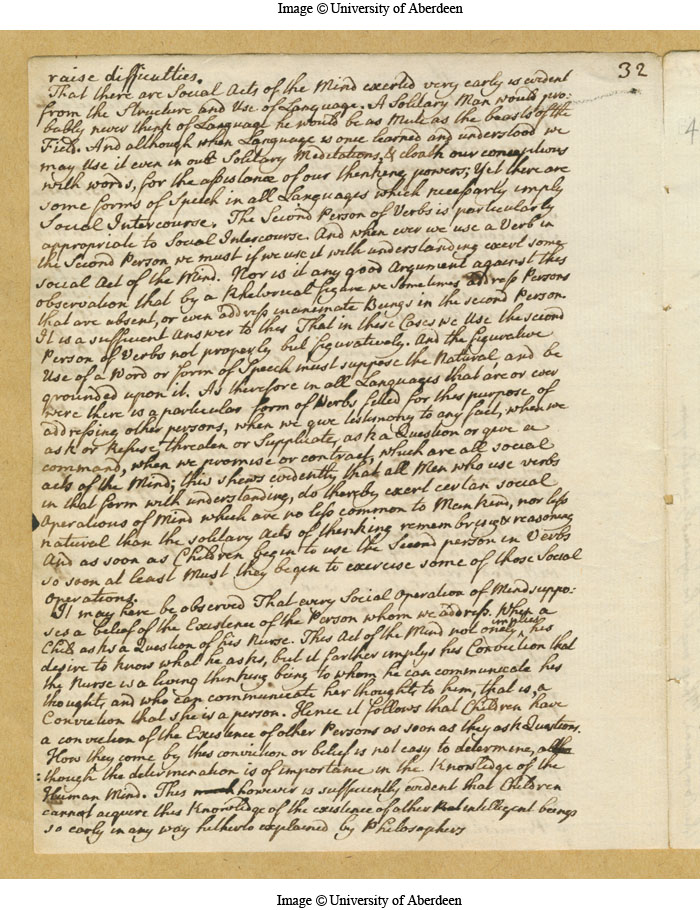 Image © University of Aberdeen
32
raise difficulties.
That there are Social Acts of the Mind exerted very early is evident
from the Structure and Use of Language. A Solitary Man would pro:
bably never think of Language he would be as Mute as the beasts of the
Field. And although when Language is once learned and understood we
may Use it even in our Solitary Meditations, & cloath our conceptions
with words, for the assistance of our thinking powers; Yet there are
some forms of Speech in all Languages which necessarly imply
Social Intercourse. The Second Person of Verbs is particularly
appropriate to Social Intercourse. And when ever we use a Verb in
the Second Person we must if we use it with understanding exert some
social Act of the Mind. Nor is it any good Argument against this
observation that by a Rhetorical figure we sometimes address Persons
that are absent, or even address inanimate Beings in the second Person.
It is a sufficient Answer to this That in these Cases we Use the second
Person of Verbs not properly but figuratively. And the figurative
Use of a Word or form of Speech must suppose the Natural and be
grounded upon it. As therefore in all Languages that are or ever
were there is a particular form of Verbs fitted for this purpose of
addressing other persons, when we give testimony to any fact, when we
ask or Refuse, threaten or Supplicate, ask a Question or give a
command, when we promise or contract, which are all social
acts of the Mind; this shews evidently that all Men who use verbs
in that form with understanding, do thereby exert certan social
Operations of Mind which are no less common to Mankind, nor less
natural than the solitary Acts of thinking remembring & reasoning
And as soon as Children begin to use the Second person in Verbs
so soon at least Must they begin to exercise some of those Social
Operations.
It may here be observed That every Social Operation of Mind suppo:
ses a belief of the Existence of the Person whom we address. When a
Child asks a Question of his Nurse. This Act of the Mind not onely implies his
desire to know what he asks, but it farther implys his Conviction that
the Nurse is a living thinking being to whom he can communicate his
thoughts and who can communicate her thoughts to him, that is, a
Conviction that she is a person. Hence it follows that Children have
a conviction of the Existence of other Persons as soon as they ask Questions.
How they come by this conviction or belief is not easy to determine, al
:though the determination is of importance in the Knowledge of the
Human Mind. This however is sufficiently evident that Children
cannot acquire this Knowledge of the existence of other intelligent beings
so early in any way hitherto explained by Philosophers
4
Image © University of Aberdeen